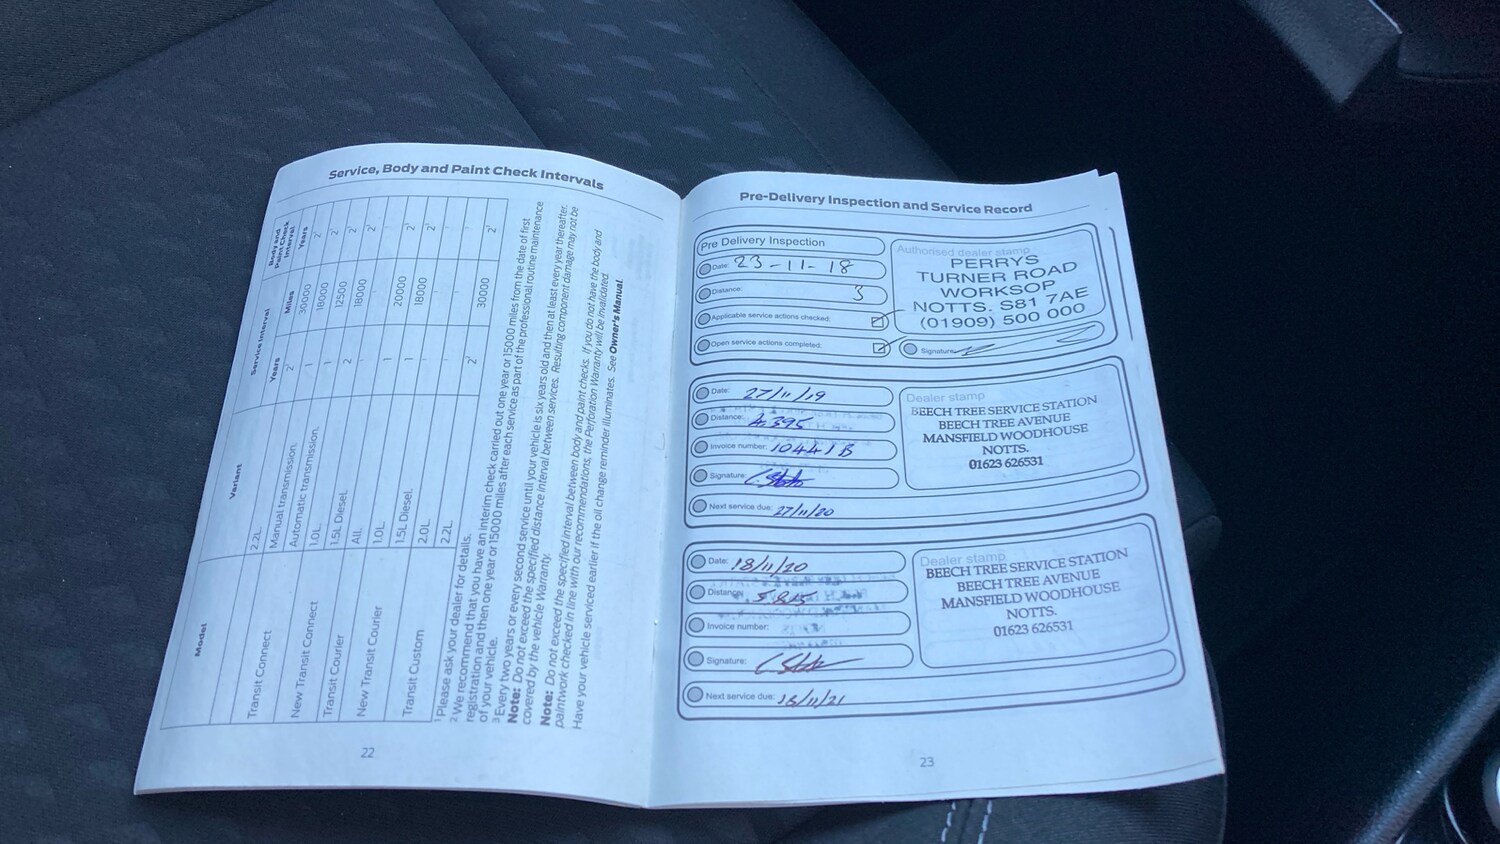 Service, Body and Paint Check Intervals
Model
Variant
Service Interval
Body and Paint Check Interval
Years
Miles
Years
Transit Connect
2.2L
2¹
30000
2¹
New Transit Connect
Manual transmission.
1
18000
Automatic transmission.
1
12500
Transit Courier
1.0L.
1.5L Diesel.
2
18000
New Transit Courier
All.
1.0L
1
20000
1.5L Diesel.
1
18000
Transit Custom
2.0L.
2.2L.
30000
¹ Please ask your dealer for details.
² We recommend that you have an interim check carried out one year or 15000 miles from the date of first
registration and then one year or 15000 miles after each service as part of the professional routine maintenance
of your vehicle.
³ Every two years or every second service until your vehicle is six years old and then at least every year thereafter.
Note: Do not exceed the specified distance interval between services. Resulting component damage may not be
covered by the vehicle Warranty.
Note: Do not exceed the specified interval between body and paint checks. If you do not have the body and
paintwork checked in line with our recommendations, the Perforation Warranty will be invalidated.
Have your vehicle serviced earlier if the oil change reminder illuminates. See Owner's Manual.
22
Pre-Delivery Inspection and Service Record
Pre Delivery Inspection
Date: 23-11-18
Distance: 3
Applicable service actions checked:
Open service actions completed:
Authorised dealer stamp
PERRYS
TURNER ROAD
WORKSOP
NOTTS. S81 7AE
(01909) 500 000
Signature:
Date: 27/11/19
Distance: 4395
Invoice number: 10441B
Signature:
Next service due: 27/11/20
Dealer stamp
BEECH TREE SERVICE STATION
BEECH TREE AVENUE
MANSFIELD WOODHOUSE
NOTTS.
01623 626531
Date: 18/11/20
Distance: 5815
Invoice number:
Signature:
Next service due: 18/11/21
Dealer stamp
BEECH TREE SERVICE STATION
BEECH TREE AVENUE
MANSFIELD WOODHOUSE
NOTTS.
01623 626531
23